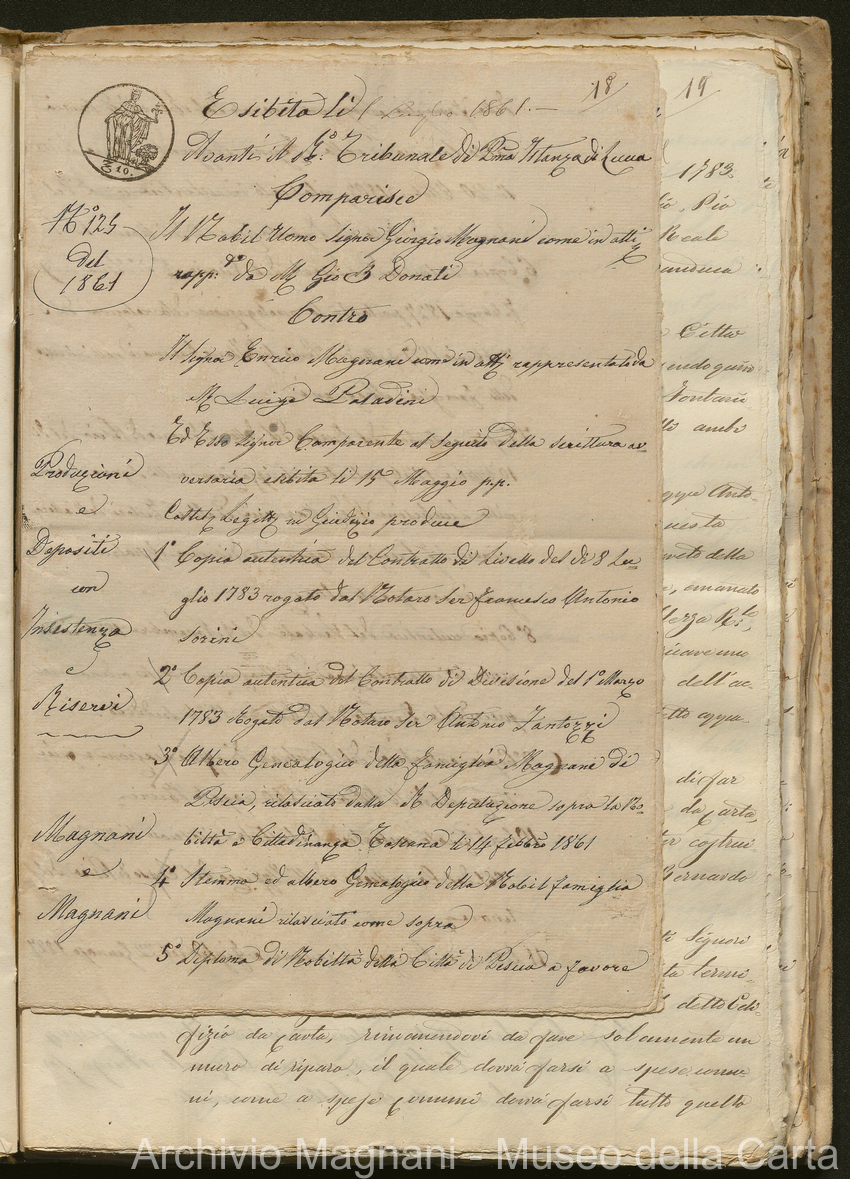 18
Esibita li 1 Luglio 1861.—
Avanti il R.º Tribunale di Pma Istanza di Lucca
Comparisce
Nº 125
del
1861
Il Nobil Uomo Signor Giorgio Magnani come in atti
rapp.to da Mr Gio B Donati
Contro
Il Signor Enrico Magnani come in atti rappresentato da
Mr Luigi Paladini
Ed Esso Signor Comparente al seguito della scrittura av-
versaria esibita li 15 Maggio p.p.
in Giudizio produce
Produzioni
e
Depositi
con
Insistenza
e
Riservi
Magnani
e
Magnani
1º Copia autentica del Contratto di Livello del di 8 Lu-
glio 1783 rogato dal Notaro Ser Francesco Antonio
Sorini
2º Copia autentica del Contratto di Divisione del 1º Marzo
1783 Rogato dal Notaro Ser Antonio
3º Albero Genealogico della famiglia Magnani di
Pescia, rilasciato dalla R Deputazione sopra la No-
biltà e Cittadinanza Toscana li 14 febbro 1861
4º Stemma ed albero Genealogico della Nobil famiglia
Magnani rilasciato come sopra
5º Diploma di Nobiltà della Città di Pescia a favore
19
1783
Pio
Reale
Città
Fontani
ambi
Anto-
questa
della
emanato
dell'ac-
di far
da Carta,
costrui
Bernardo
Signori
termi-
detto Edi-
fizio da Carta, rimanendovi da fare solamente un
muro di riparo, il quale dovrà farsi a spese comu-
ni, come a spese comuni dovrà farsi tutto quello
Archivio Magnani - Museo della Carta